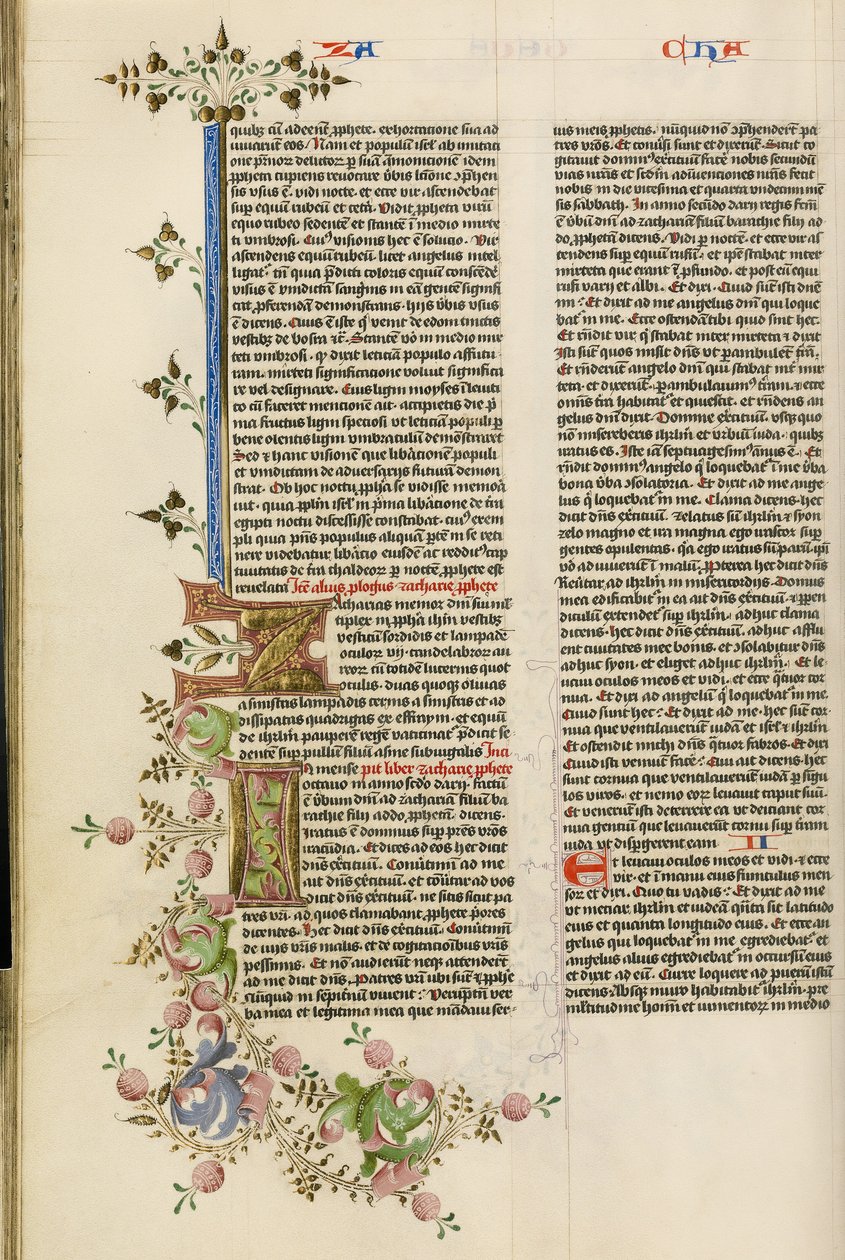 ZA CHA
quibȝ cū adeēnt ꝓphete. exhortatione sua ad
iuuarūt eos. Nam et populū isr̄l ab imitati
one p̄rior̄ delictor̄ ꝑ suā āmonicionē idem
ꝓpheta cupiens reuocare v̄bis
sis vsus ē. vidi nocte. et ecce vir ascendebat
sup̄ equū rubeū et cetā. Vidit ꝓpheta virū
equo rubeo sedentē et stantē ī medio mirte
ti vmbrosi. Cui⁹ visionis hec ē solucio. Vir
ascendens equū rubeū. licet angelus intel
ligat̄. tn̄ qua p̄diti coloris equū
visus ē vindictā sanginis in eā gentē signifi
cat ꝓferendā demonstrans. hijs v̄bis vsus
ē dicens. Quis ē iste q̄ venit de edom tinctis
vestibȝ de bosra Stantē vō in medio mir
teti vmbrosi. qꝫ dixit leticiā populo affutu
ram. mirteti significatione voluit significa
re vel designare. Cuius ligni moyses ī leuiti
co cū faceret mentionē ait. accipietis die p̄
ma fructus ligni speciosi vt leticiā populi ꝑ
bene olentis ligni vmbraculū demōstraret
Sed ⁊ hanc visionē que lib̄ationē populi
et vindictam de aduersarijs futurā demon
strat. Ob hoc noctu ꝓpha se vidisse memoā
uit. quia ppl̄m isr̄l in p̄ima lib̄atione de tr̄a
egipti noctu discessisse constabat. cui⁹ exem
pli quia p̄ns populus aliquā ꝑtē ī se reti
nere videbatur lib̄atio eiusdē ac reddit⁹ cap
tiuitatis de tr̄a chaldeor̄ ꝑ nocte ꝓphete est
reuelata Itē alius ꝓlogus zacharie ꝓphete
Zacharias memor dn̄i sui mul
tiplex in ꝓpha ih̄m vestibȝ
vestitū sordidis et lampadē
oculor̄ vij. candelabror au
reor cū totidē lucernis quot
oculis. duas quoqȝ oliuas
a sinistris lampadis cernis a sinistris et ad
dissipatas quadrigas ex effraym. et equū
de ih̄rlm pauperē regē vaticinat̄ p̄dicit se
dentē sup̄ pullū filiū asine subiugalis Inci
In mense pit liber zacharie ꝓphete
octauo in anno scd̄o darij. factū
ē v̄bum dn̄i ad zachariā filiū ba
rachie filij addo ꝓphetā dicens.
Iratus ē dominus sup̄ pr̄es vr̄os
iracūdia. Et dices ad eos hec dicit
dn̄s ex̄cituū. Conūtimī ad me
ait dn̄s ex̄cituū. et cōūtar ad vos
dicit dn̄s ex̄cituū. ne sitis sicut pa
tres vr̄i. ad quos clamabant ꝓphete p̄ores
dicentes. hec dicit dn̄s ex̄cituū. Conūtimī
de viijs vr̄is malis. et de cogitationibus vr̄is
pessimis. Et nō audierūt neqȝ attenderr̄t
ad me dicit dn̄s. Patres vr̄i ubi sūt ⁊ ꝓphe
nūquid in sepit̄nū viuent? Verūptn̄ ver
ba mea et legitima mea que mādaui ser
uis meis ꝓphetis. nūquid nō ꝯp̄henderr̄t pa
tres vr̄os. Et conūsi sunt et dixerūt. Sicut co
gitauit domin⁹ ex̄cituū facē nobis secundū
vias nr̄as et scd̄m adinuentiones nr̄as fecit
nobis in die vicesima et quarta vndecim mē
sis sabbath. In anno secūdo darij regis fcm̄
ē v̄bū dn̄i ad zachariā filiū barachie filij ad
do. ꝓphetā dicens. Vidi ꝑ noctē. et ecce vir as
cendens sup̄ equū ruffū. et ip̄e stabat inter
mirteta que erant ī ꝓfundo. et post eū equi
rufi varij et albi. Et dixi. Quid sūt isti dn̄e
mi? Et dixit ad me angelus dn̄i qui loque
bat̄ in me. Ecce ostendā tibi quid sint hec.
Et rn̄dit vir q̄ stabat inter mirteta ⁊ dixit
Isti sūt quos misit dn̄s vt ꝑambulēt tr̄ā.
Et rn̄derūt angelo dn̄i qui stabat int̄ mir
teta. et dixerūt. ꝑambulauim⁹ tr̄am. ⁊ ecce
omīs tr̄a habitat̄ et quescit. et rn̄dens an
gelus dn̄i dixit. Domine ex̄cituū. vsqȝ quo
nō misereberis ih̄rlm et vrbiū iuda. quibȝ
iratus es. Iste iā septuagesim⁹ ānus ē. Et
rn̄dit domin⁹ angelo q̄ loquebat̄ ī me v̄ba
bona v̄ba ꝯsolatoria. Et dixit ad me ange
lus q̄ loquebat̄ in me. Clama dicens. hec
dicit dn̄s ex̄cituū. zelatus sū ih̄rlm ⁊ syon
zelo magno et ira magna ego irascor sup̄
gentes opulentas. qa ego iratus sū parū. ip̄i
vō adiuuerūt ī malū. ꝓpterea hec dicit dn̄s
Reūtar ad ih̄rlm in misericordijs. Domus
mea edificabit̄ in ea ait dn̄s ex̄cituū. ⁊ ꝑpen
diculū extendet̄ sup̄ ih̄rlm. adhuc clama
dicens. hec dicit dn̄s ex̄cituū. adhuc afflu
ent ciuitates mee bonis. et ꝯsolabitur dn̄s
adhuc syon. et eliget adhuc ih̄rlm. Et le
uaui oculos meos et vidi. et ecce q̄tuor cor
nua. Et dixi ad angelū q̄ loquebat̄ in me.
Quid sunt hec? Et dixit ad me. hec sūt cor
nua que ventilauerūt iudā et isr̄l ⁊ ih̄rlm
Et ostendit michi dn̄s q̄tuor fabros. Et dixi
Quid isti veniūt facē? Qui ait dicens. hec
sunt cornua que ventilauerūt iudā ꝑ sigu
los viros. et nemo eor̄ leuauit caput suū.
Et venerūt isti deterrere ea vt deiciant cor
nua gentiū que leuauerūt cornu sup̄ tr̄am
iuda vt disꝑgerent eam II
Et leuaui oculos meos et vidi. ⁊ ecce
vir. et ī manu eius funiculus men
sor̄ et dixi. Quo tu vadis? Et dixit ad me
vt metiar ih̄rlm et videā q̄nta sit latitudo
eius et quanta longitudo eius. Et ecce an
gelus qui loquebat̄ in me egrediebat̄. et
angelus alius egrediebat̄ in occursū eius
et dixit ad eū. Curre loquere ad puerū istū
dicens. Absqȝ muro habitabit̄ ih̄rlm. pre
mltitudīe homī et iumentor̄ in medio